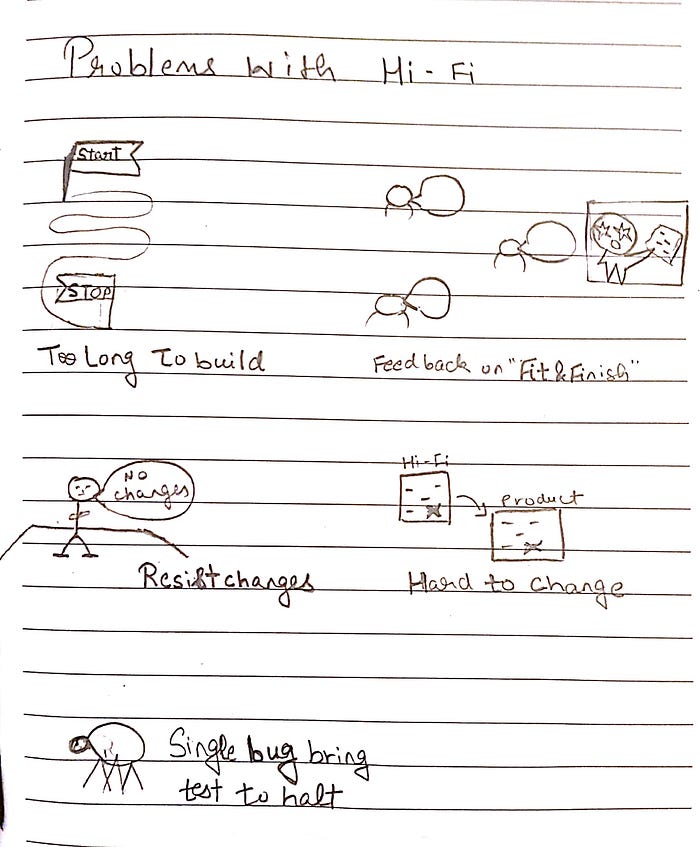 Problems with Hi-Fi
Start
STOP
Too Long To build
Feedback on "Fit & Finish"
NO
changes
Resist changes
Hi-Fi
product
Hard to change
Single bug bring
test to halt